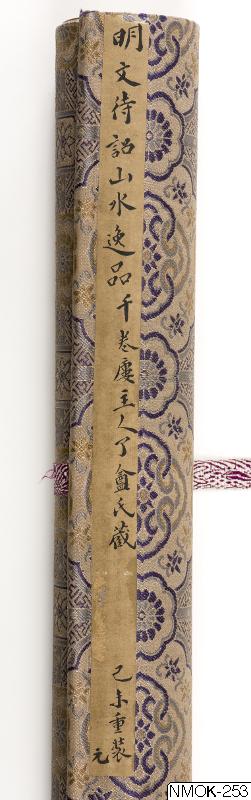 明文待詔山水逸品千卷廔主人了盦氏藏
己未重裝
元
NMOK-253